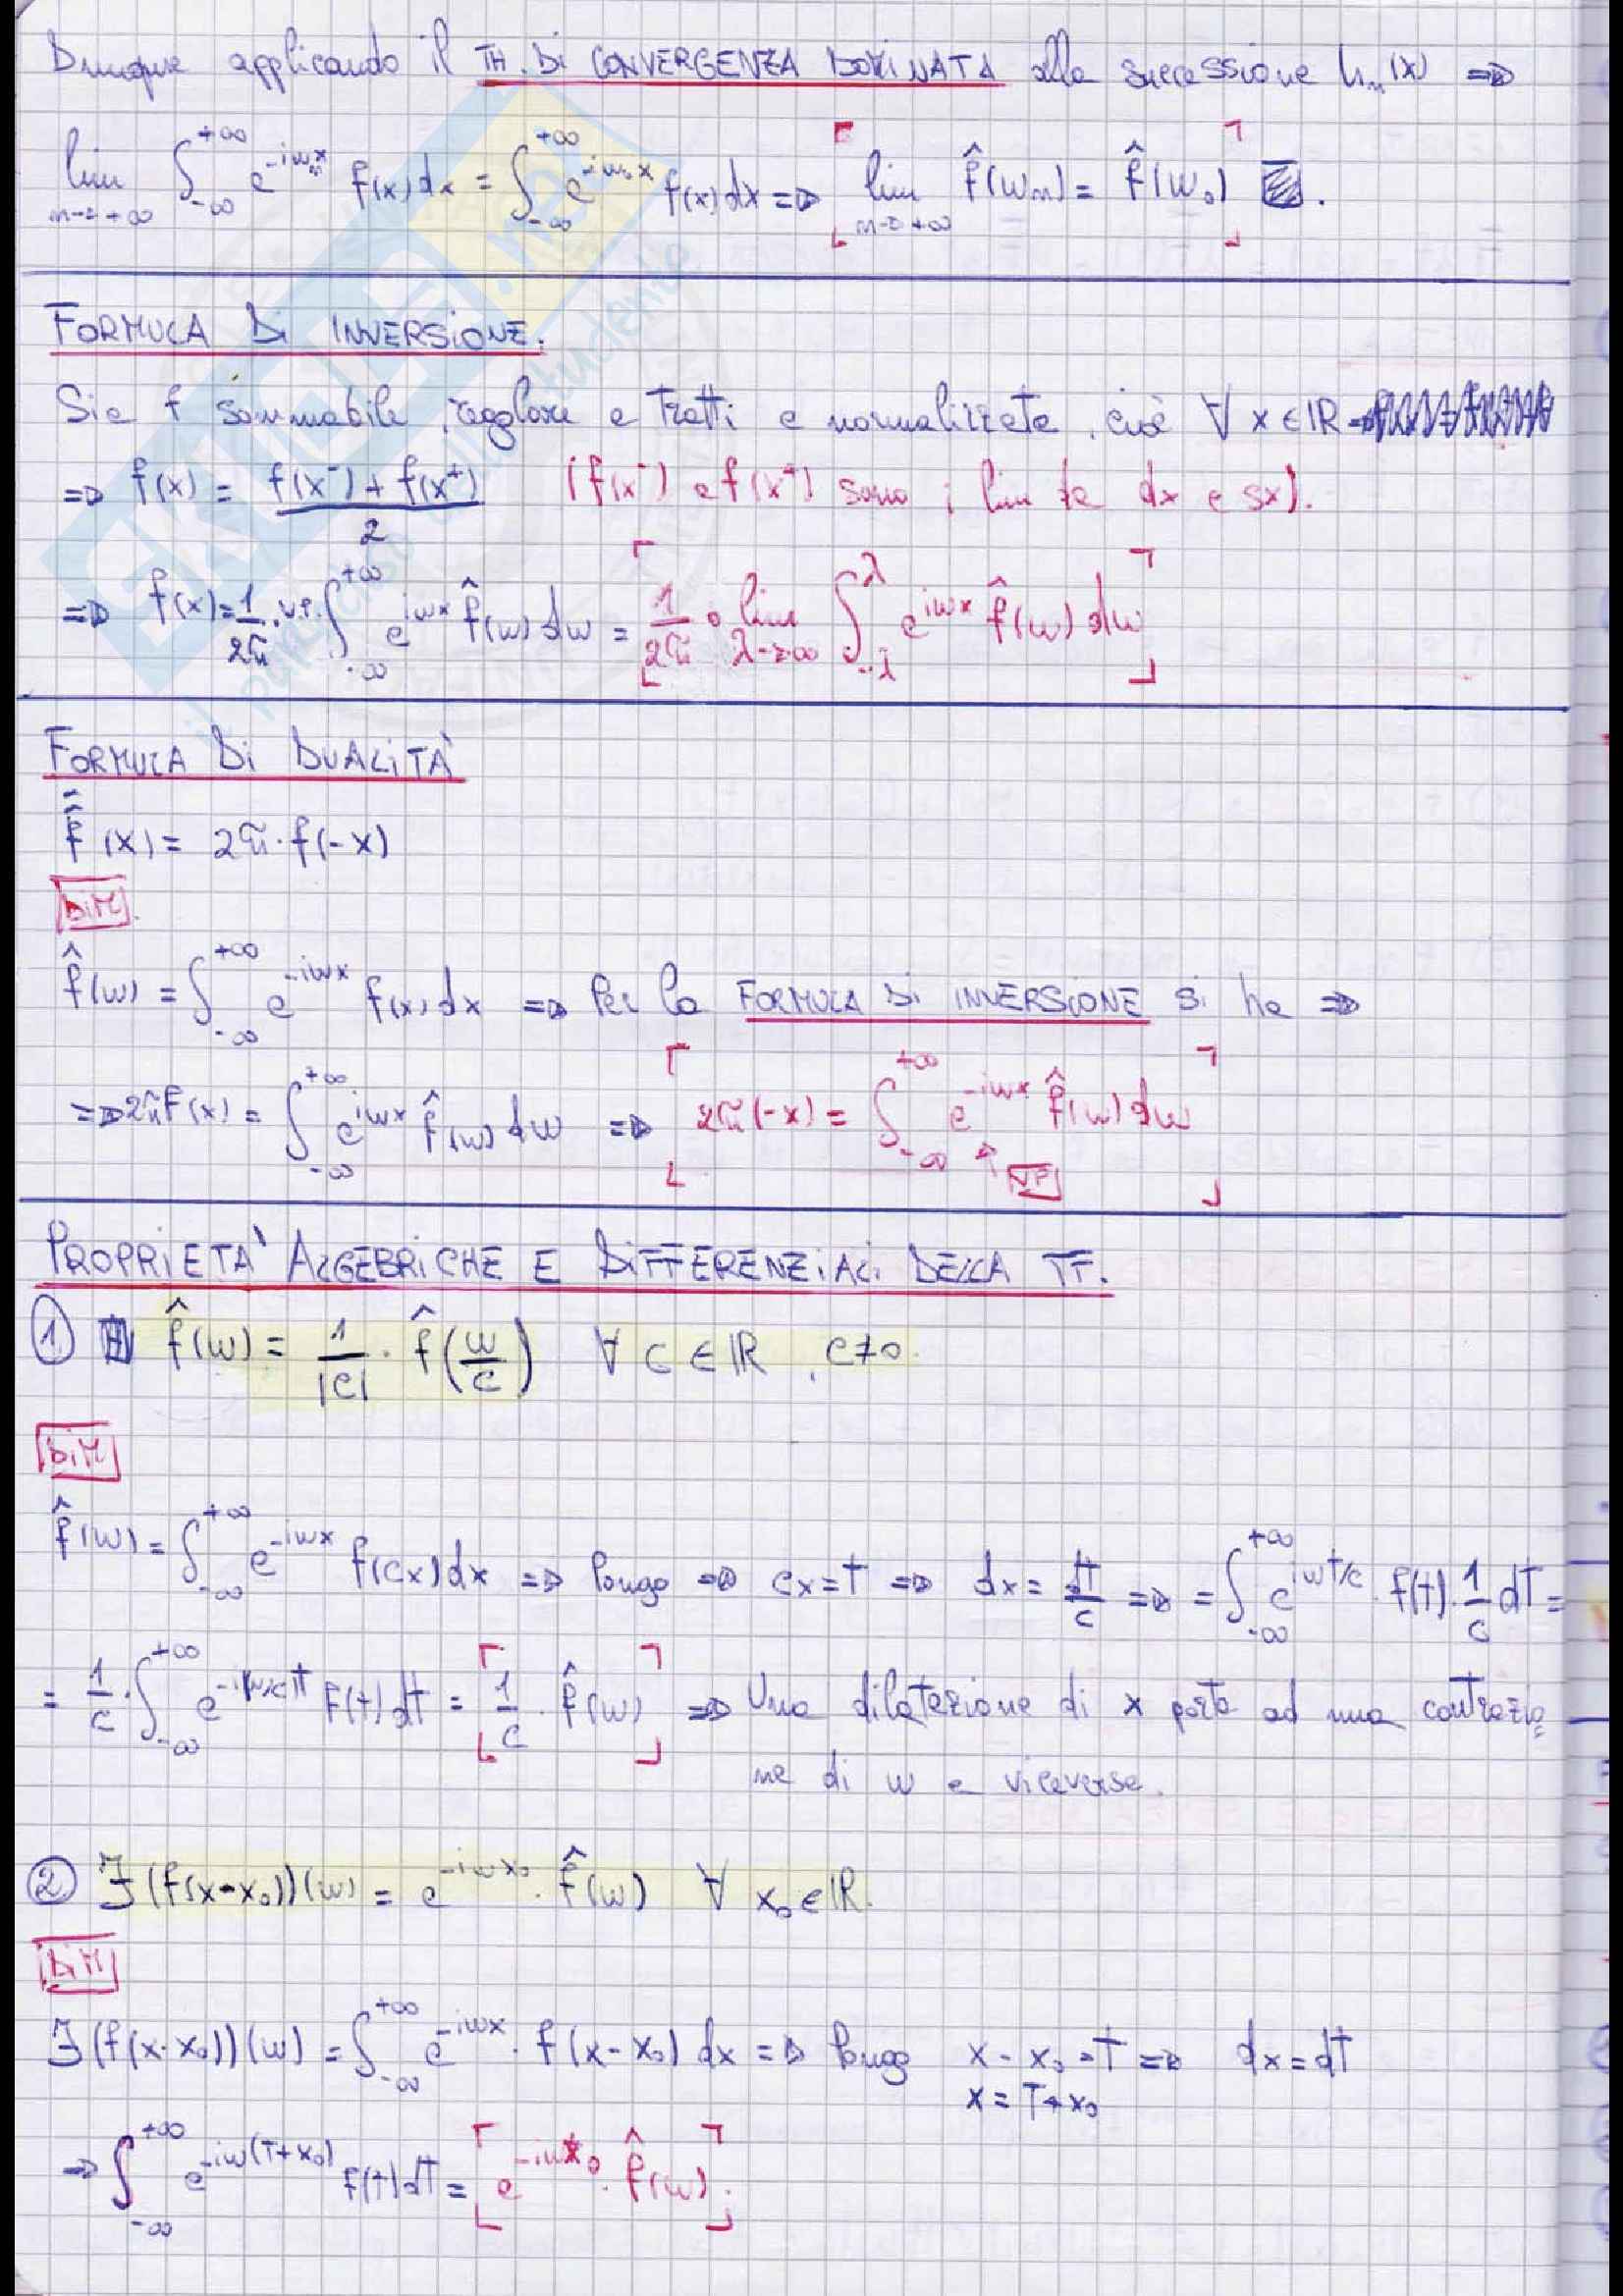 Dunque applicando il TH. DI CONVERGENZA DOMINATA alla successione hₙ(x) ⇒
lim n→+∞ ∫_{-∞}^{+∞} e^{-iwₙx} f(x)dx = ∫_{-∞}^{+∞} e^{-iw₀x} f(x)dx ⇒ [lim n→+∞ f̂(wₙ) = f̂(w₀)] .
FORMULA DI INVERSIONE.
Sia f sommabile, regolare a tratti e normalizzata, cioè ∀ x∈ℝ
⇒ f(x) = (f(x⁻)+f(x⁺))/2 (f(x⁻) e f(x⁺) sono i lim da dx e sx).
⇒ f(x) = 1/2π · v.p. ∫_{-∞}^{+∞} e^{iwx} f̂(w) dw = [1/2π · lim λ→∞ ∫_{-λ}^{λ} e^{iwx} f̂(w) dw]
FORMULA DI DUALITÀ
f̂̂(x) = 2π·f(-x)
DIM.
f̂(w) = ∫_{-∞}^{+∞} e^{-iwx} f(x)dx ⇒ Per la FORMULA DI INVERSIONE si ha ⇒
⇒ 2πf(x) = ∫_{-∞}^{+∞} e^{iwx} f̂(w) dw ⇒ [2π(-x) = ∫_{-∞}^{+∞} e^{-iwx} f̂(w)dw]
↑
PROPRIETÀ ALGEBRICHE E DIFFERENZIALI DELLA TF.
① f̂(w) = 1/|c| · f̂(w/c) ∀ c∈ℝ, c≠0.
DIM
f̂(w) = ∫_{-∞}^{+∞} e^{-iwx} f(cx)dx ⇒ Pongo ⇒ cx=T ⇒ dx = dT/c ⇒ = ∫_{-∞}^{+∞} e^{iwT/c} · f(t) · 1/c dT =
= 1/c · ∫_{-∞}^{+∞} e^{-i(w/c)T} f(t)dT = [1/c · f̂(w)] ⇒ Una dilatazione di x porta ad una contrazio
ne di w e viceversa.
② ℱ(f(x-x₀))(w) = e^{-iwx₀} · f̂(w) ∀ x₀∈ℝ.
DIM
ℱ(f(x-x₀))(w) = ∫_{-∞}^{+∞} e^{-iwx} · f(x-x₀) dx ⇒ Pongo x-x₀=T ⇒ dx=dT
x=T+x₀
⇒ ∫_{-∞}^{+∞} e^{-iw(T+x₀)} f(t)dT = [e^{-iwx₀} · f̂(w)].